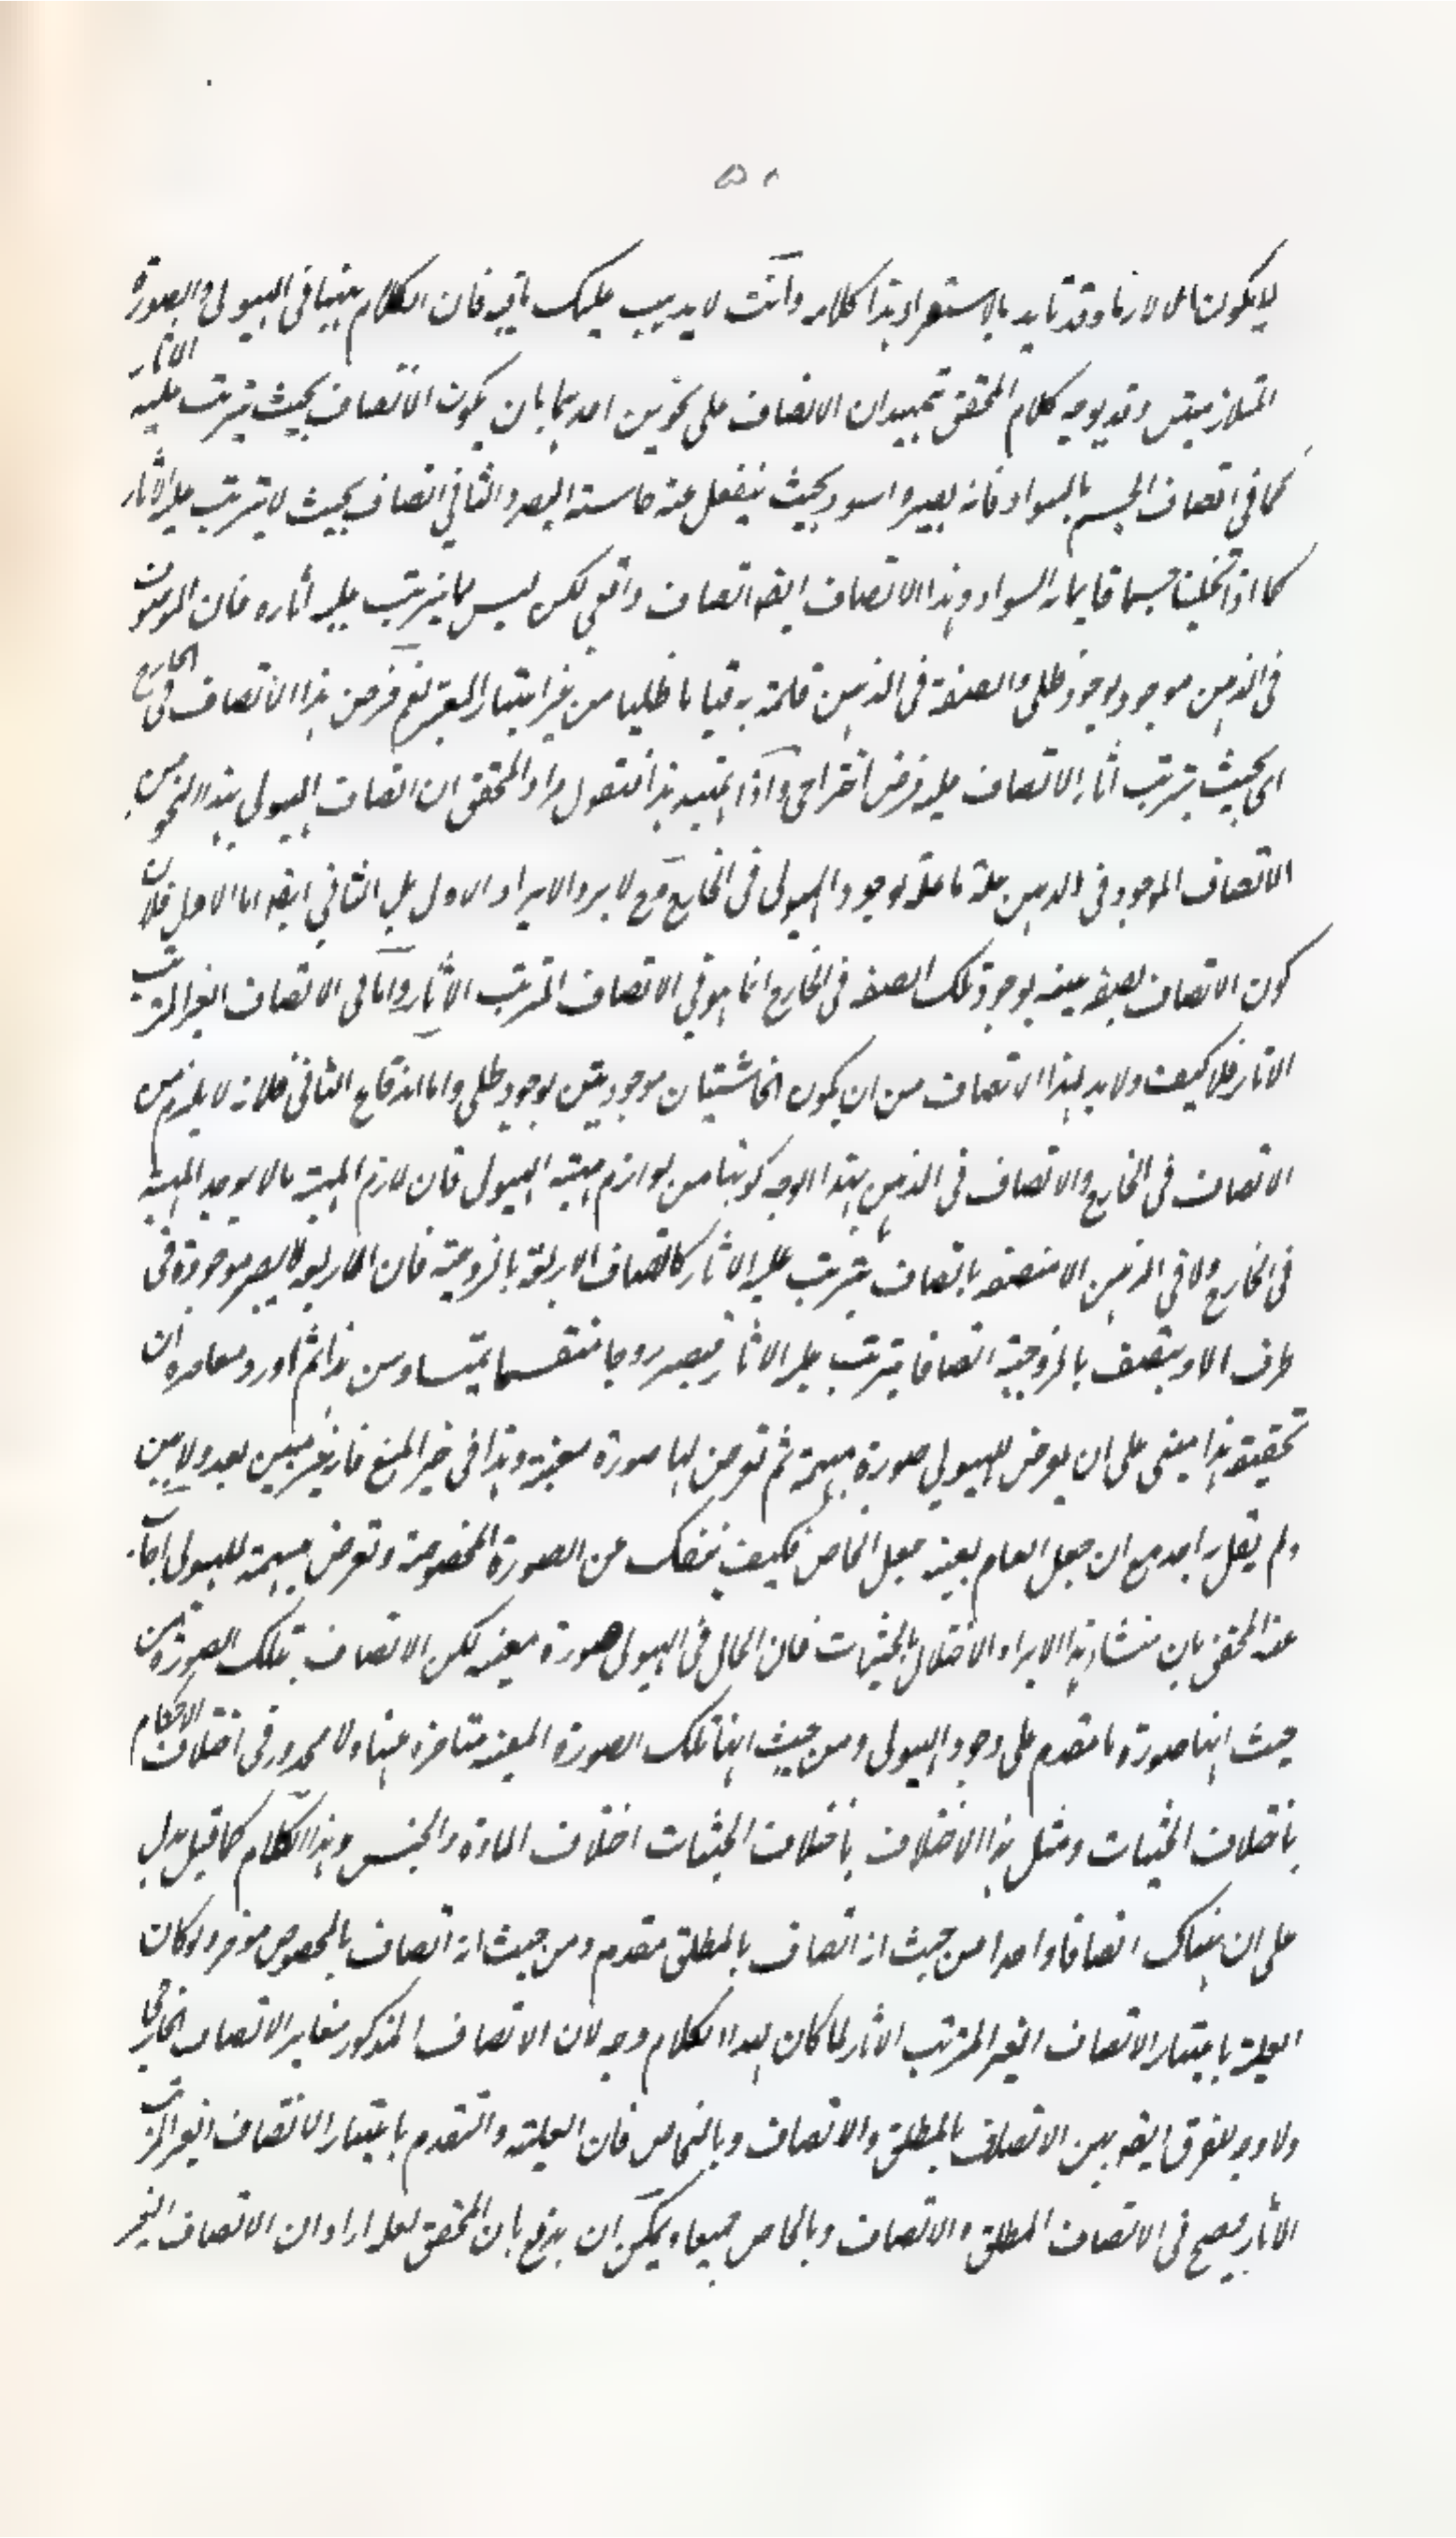 ٥٠
لا يكون الا لازما وقد تايد بالاستقراء هذا كلامه وانت لا يذهب عليك ما فيه فان الكلام ههنا في الهيولى والصورة
المتلازمتين وقد يوجه كلام المحقق بتمهيد ان الاتصاف على نحوين احدهما بان يكون الاتصاف بحيث يترتب عليه الاثار
كما في اتصاف الجسم بالسواد فانه يصير اسود بحيث ينفعل عنه حاسة البصر والثاني اتصاف بحيث لا يترتب عليه الاثار
كما اذا تخيلنا جسما قايما به السواد وهذا الاتصاف ايضه اتصاف واقعي لكن ليس مما يترتب عليه اثاره فان الموصوف
في الذهن موجود بوجود ظلي والصفة في الذهن قائمة به قياما ظليا من غير اعتبار المعتبر نعم فرض هذا الاتصاف في الخارج
اي بحيث يترتب اثار الاتصاف عليه فرض اختراعي واذا تمهد هذا فنقول مراد المحقق ان اتصاف الهيولى بهذا النحو من
الاتصاف الموجود في الذهن علة ما علة لوجود الهيولى في الخارج وح لا يرد الايراد الاول بل الثاني ايضه اما الاول فلان
كون الاتصاف بصفة معينة بوجود تلك الصفة في الخارج انما هو في الاتصاف المترتب الاثار واما في الاتصاف الغير المترتب
الاثار فلا كيف ولا بد لهذا الاتصاف من ان يكون الحاشيتان موجودتين بوجود ظلي واما اندفاع الثاني فلانه لا يلزم من
الاتصاف في الخارج والاتصاف في الذهن بهذا الوجه كونها من لوازم مهية الهيولى فان لازم المهية ما لا يوجد المهية
في الخارج ولا في الذهن الا متصفة باتصاف يترتب عليه الاثار كاتصاف الاربعة بالزوجية فان الاربعة لا يصير موجودة في
ظرف الا ويتصف بالزوجية اتصافا يترتب عليه الاثار فيصير زوجا منقسما بمتساو ومن هذا ثم اورد معاصره ان
تحقيقه هذا مبني على ان يعرض للهيولى صورة مبهمة ثم تعرض لها صورة معينة وهذا في حيز المنع فانه غير مبين بعد ولا بين
ولم يقل به احد مع ان جعل العام بعينه جعل الخاص فكيف ينفك عن الصورة المخصوصة وتعرض مبهمة للهيولى اجاب
عنه المحقق بان منشا هذا الايراد الاختلال بالحيثيات فان الحال في الهيولى صورة معينة لكن الاتصاف بتلك الصورة من
حيث انها صورة ما متقدم على وجود الهيولى ومن حيث انها تلك الصورة المعينة متاخرة عنها ولا محذور في اختلاف الاحكام
باختلاف الحيثيات ومثل هذا الاختلاف باختلاف الحيثيات اختلاف المادة والجنس وهذا الكلام كما قيل يدل
على ان هناك اتصافا واحدا من حيث انه اتصاف بالمطلق متقدم ومن حيث انه اتصاف بالمخصوص موخر ولو كان
العلية باعتبار الاتصاف الغير المترتب الاثار لما كان لهذا الكلام وجه لان الاتصاف المذكور مغاير الاتصاف الخارجي
ولا وجه للفرق ايضه بين الاتصاف بالمطلق والاتصاف وبالخاص فان العلية والتقدم باعتبار الاتصاف الغير المترتب
الاثار يصح في الاتصاف المطلق والاتصاف وبالخاص جميعا ويمكن ان يدفع بان المحقق لعله اراد ان الاتصاف الغير